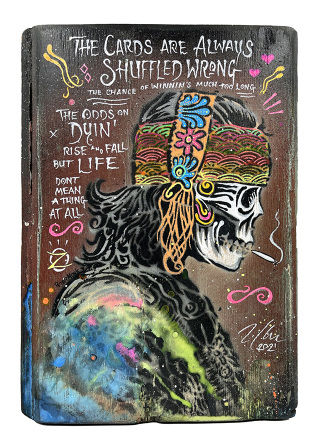 THE CARDS ARE ALWAYS
SHUFFLED WRONG
THE CHANCE OF WINNIN'S MUCH TOO LONG
THE ODDS ON
DYIN'
RISE AND FALL
BUT LIFE
DON'T
MEAN
A THING
AT ALL
2021